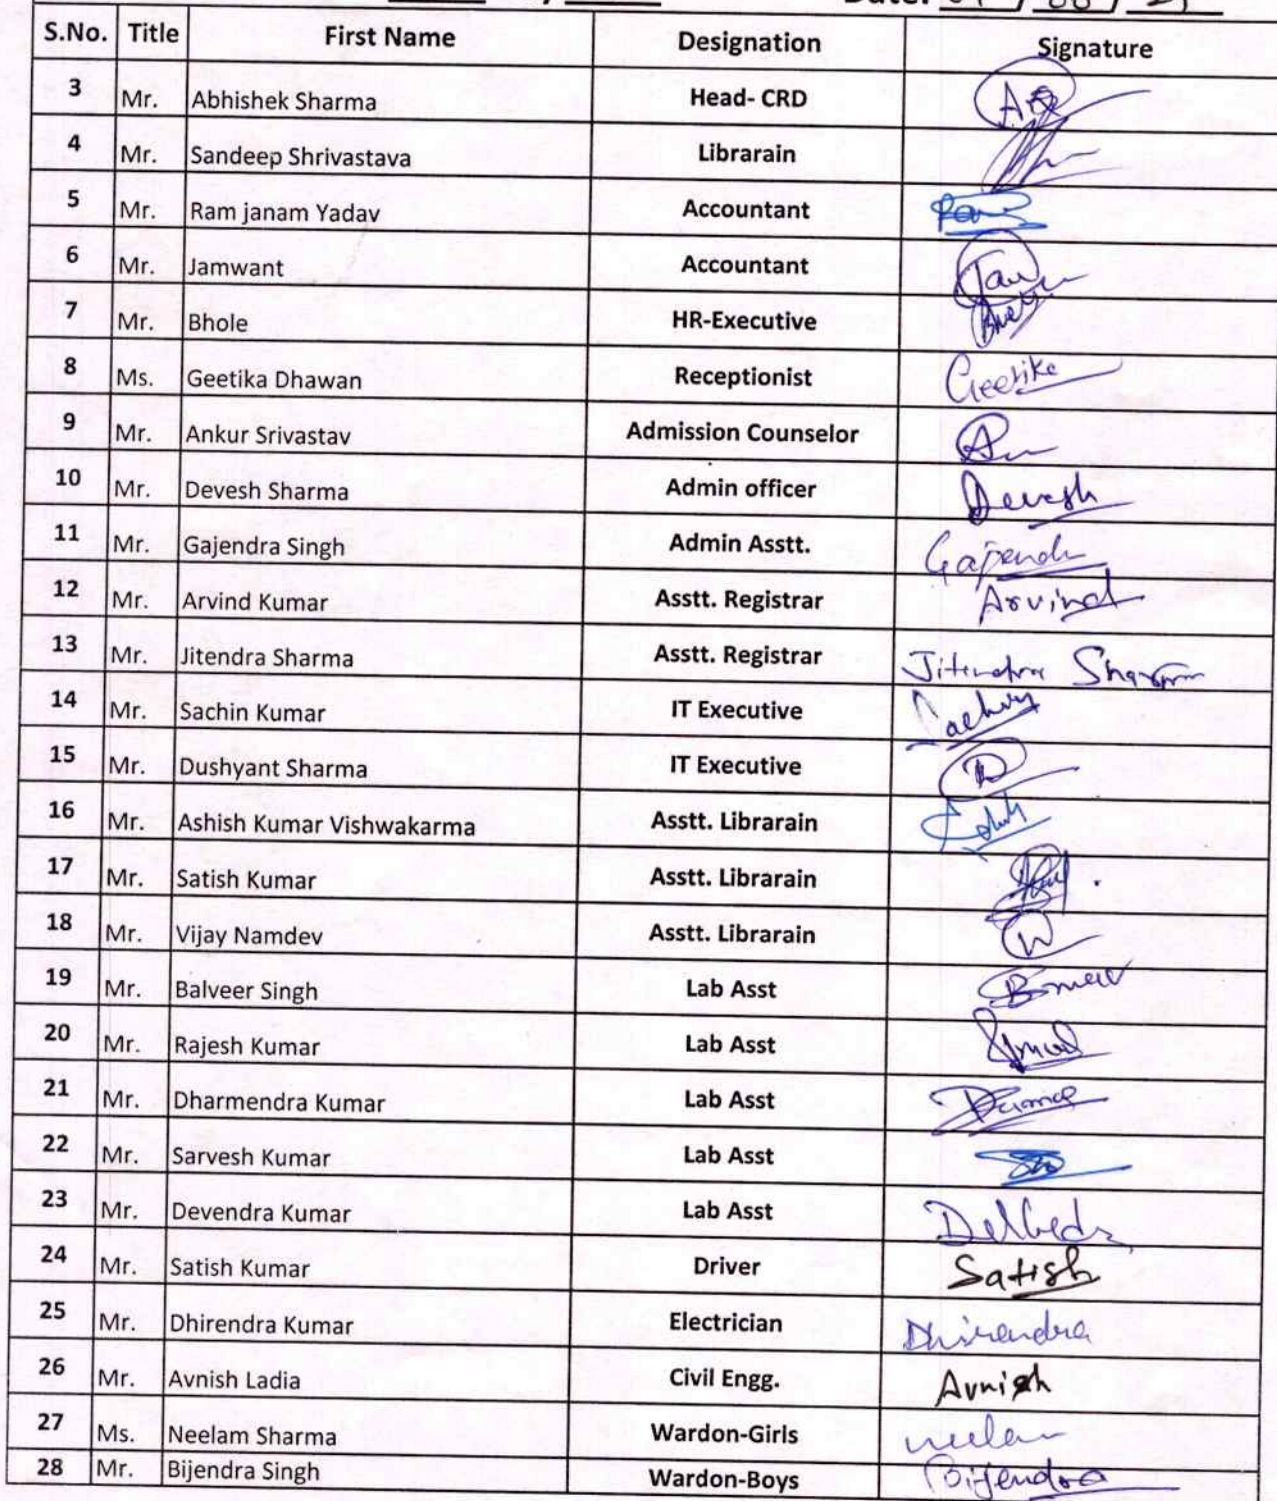 Date:
S.No. Title First Name Designation Signature
3 Mr. Abhishek Sharma Head- CRD
4 Mr. Sandeep Shrivastava Librarain
5 Mr. Ram janam Yadav Accountant
6 Mr. Jamwant Accountant
7 Mr. Bhole HR-Executive
8 Ms. Geetika Dhawan Receptionist Geetike
9 Mr. Ankur Srivastav Admission Counselor
10 Mr. Devesh Sharma Admin officer Devesh
11 Mr. Gajendra Singh Admin Asstt. Gajendr
12 Mr. Arvind Kumar Asstt. Registrar Arvind
13 Mr. Jitendra Sharma Asstt. Registrar Jitendra Sharma
14 Mr. Sachin Kumar IT Executive
15 Mr. Dushyant Sharma IT Executive
16 Mr. Ashish Kumar Vishwakarma Asstt. Librarain
17 Mr. Satish Kumar Asstt. Librarain
18 Mr. Vijay Namdev Asstt. Librarain
19 Mr. Balveer Singh Lab Asst
20 Mr. Rajesh Kumar Lab Asst
21 Mr. Dharmendra Kumar Lab Asst
22 Mr. Sarvesh Kumar Lab Asst
23 Mr. Devendra Kumar Lab Asst
24 Mr. Satish Kumar Driver Satish
25 Mr. Dhirendra Kumar Electrician Dhirendra
26 Mr. Avnish Ladia Civil Engg. Avnish
27 Ms. Neelam Sharma Wardon-Girls neelam
28 Mr. Bijendra Singh Wardon-Boys Bijendra